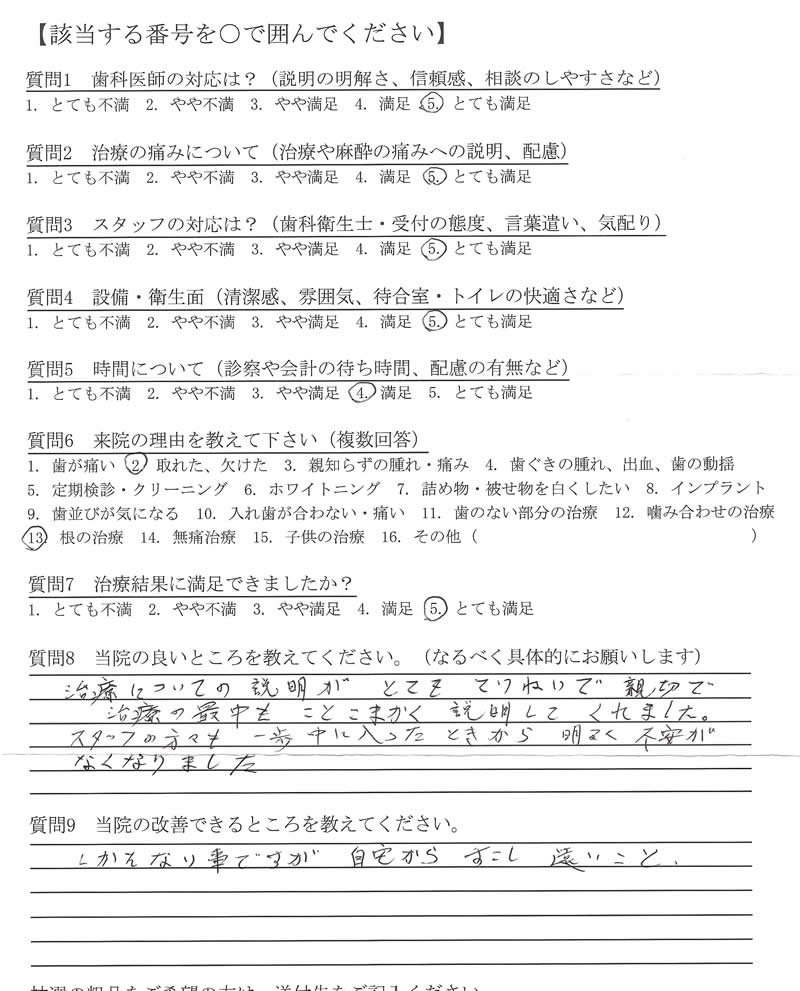 【該当する番号を○で囲んでください】
質問1　歯科医師の対応は？（説明の明解さ、信頼感、相談のしやすさなど）
1. とても不満　2. やや不満　3. やや満足　4. 満足　5. とても満足
質問2　治療の痛みについて（治療や麻酔の痛みへの説明、配慮）
1. とても不満　2. やや不満　3. やや満足　4. 満足　5. とても満足
質問3　スタッフの対応は？（歯科衛生士・受付の態度、言葉遣い、気配り）
1. とても不満　2. やや不満　3. やや満足　4. 満足　5. とても満足
質問4　設備・衛生面（清潔感、雰囲気、待合室・トイレの快適さなど）
1. とても不満　2. やや不満　3. やや満足　4. 満足　5. とても満足
質問5　時間について（診察や会計の待ち時間、配慮の有無など）
1. とても不満　2. やや不満　3. やや満足　4. 満足　5. とても満足
質問6　来院の理由を教えて下さい（複数回答）
1. 歯が痛い　2. 取れた、欠けた　3. 親知らずの腫れ・痛み　4. 歯ぐきの腫れ、出血、歯の動揺
5. 定期検診・クリーニング　6. ホワイトニング　7. 詰め物・被せ物を白くしたい　8. インプラント
9. 歯並びが気になる　10. 入れ歯が合わない・痛い　11. 歯のない部分の治療　12. 噛み合わせの治療
13. 根の治療　14. 無痛治療　15. 子供の治療　16. その他（　　　）
質問7　治療結果に満足できましたか？
1. とても不満　2. やや不満　3. やや満足　4. 満足　5. とても満足
質問8　当院の良いところを教えてください。（なるべく具体的にお願いします）
治療についての説明が とても ていねいで 親切で
治療の最中も ことこまかく 説明して くれました。
スタッフの方々も 一歩中に入ったときから 明るく 不安が
なくなりました
質問9　当院の改善できるところを教えてください。
しかたない事ですが 自宅から すこし 遠いこと、